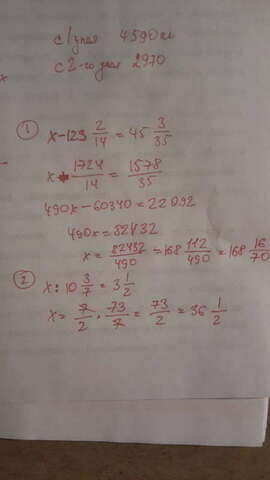 с 1 улея 4590 кг
с 2-го улея 2970
① x-123 2/14 = 45 3/35
x - 1724/14 = 1578/35
490x - 60340 = 22092
490x = 82432
x = 82432/490 = 168 112/490 = 168 16/70
② x : 10 3/7 = 3 1/2
x = 7/2 · 73/7 = 73/2 = 36 1/2